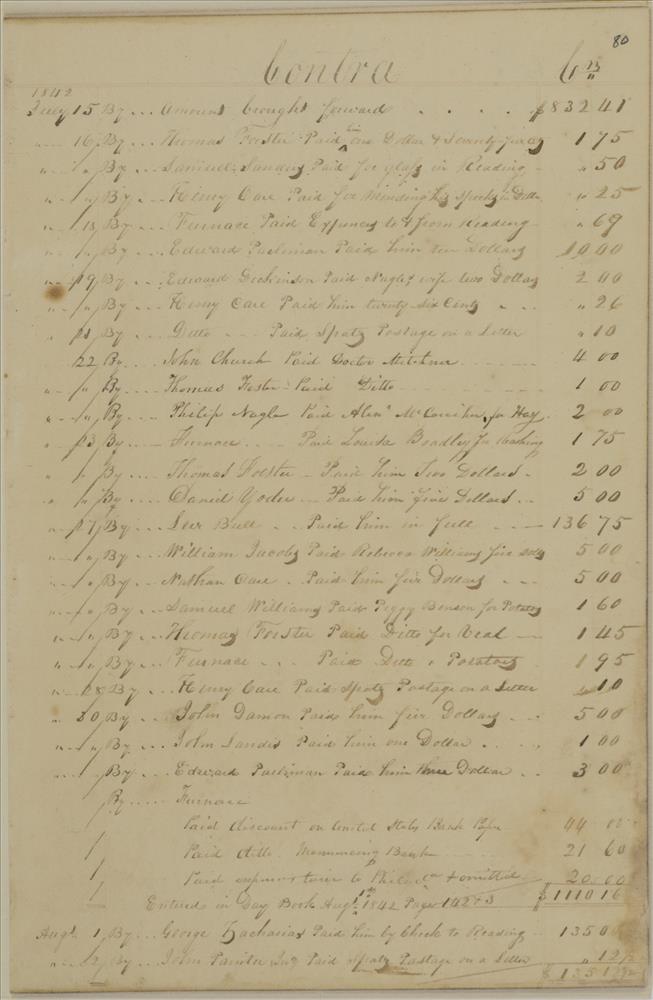 80
Contra Crs
1842
July 15 By ... Amount brought forward . . . . $832 41
" 16 By ... Thomas Forster Paid him one Dollar & Seventy five cts 1 75
" " By ... Samuel Sanders Paid for glass in Reading " 50
" " By ... Henry Care Paid for Mending his Specks in Ditto " 25
" 18 By ... Furnace Paid Expences to & from Reading " 69
" " By ... Edward Parliman Paid him ten Dollars 10 00
" 19 By ... Edward Dickinson Paid Nagles wife two Dollars 2 00
" " By ... Henry Care Paid him twenty six Cents " 26
" By ... Ditto Paid Spatz Postage on a Letter " 10
22 By ... John Church Paid Doctor 4 00
" " By ... Thomas Foster Paid Ditto 1 00
" " By ... Philip Nagle Paid Alexr for Hay 2 00
" 23 By ... Furnace Paid Louisa Bradley for Washing 1 75
" " By ... Thomas Forster Paid him Two Dollars 2 00
" " By ... Daniel Yoder Paid him five Dollars 5 00
" 27 By ... Bull Paid him in full 136 75
" " By ... William Jacobs Paid Rebecca Williams five Dolls 5 00
" " By ... Nathan Care Paid him five Dollars 5 00
" " By ... Samuel Williams Paid Peggy Benson for Potatoes 1 60
" " By ... Thomas Forster Paid Ditto for Veal 1 45
" " By ... Furnace Paid Ditto " Potatoes 1 95
" 28 By ... Henry Care Paid Spatz Postage on a Letter " 10
" 30 By ... John Damon Paid him five Dollars 5 00
" " By ... John Landis Paid him one Dollar 1 00
" " By ... Edward Parliman Paid him three Dollars 3 00
By ... Furnace
Paid discount on United States Bank Paper 44 00
Paid ditto Bank 21 60
Paid expences twice to Philada & omitted 20 00
Entered in Day Book Augt 1st 1842 Pages 142 & 3 $1110 16
Augt 1 By ... George Zacharias Paid him by Check to Reading 135 00
" 2 By ... John Painter Jnr Paid Spatz Postage on a Letter " 12½
$ 135 12½